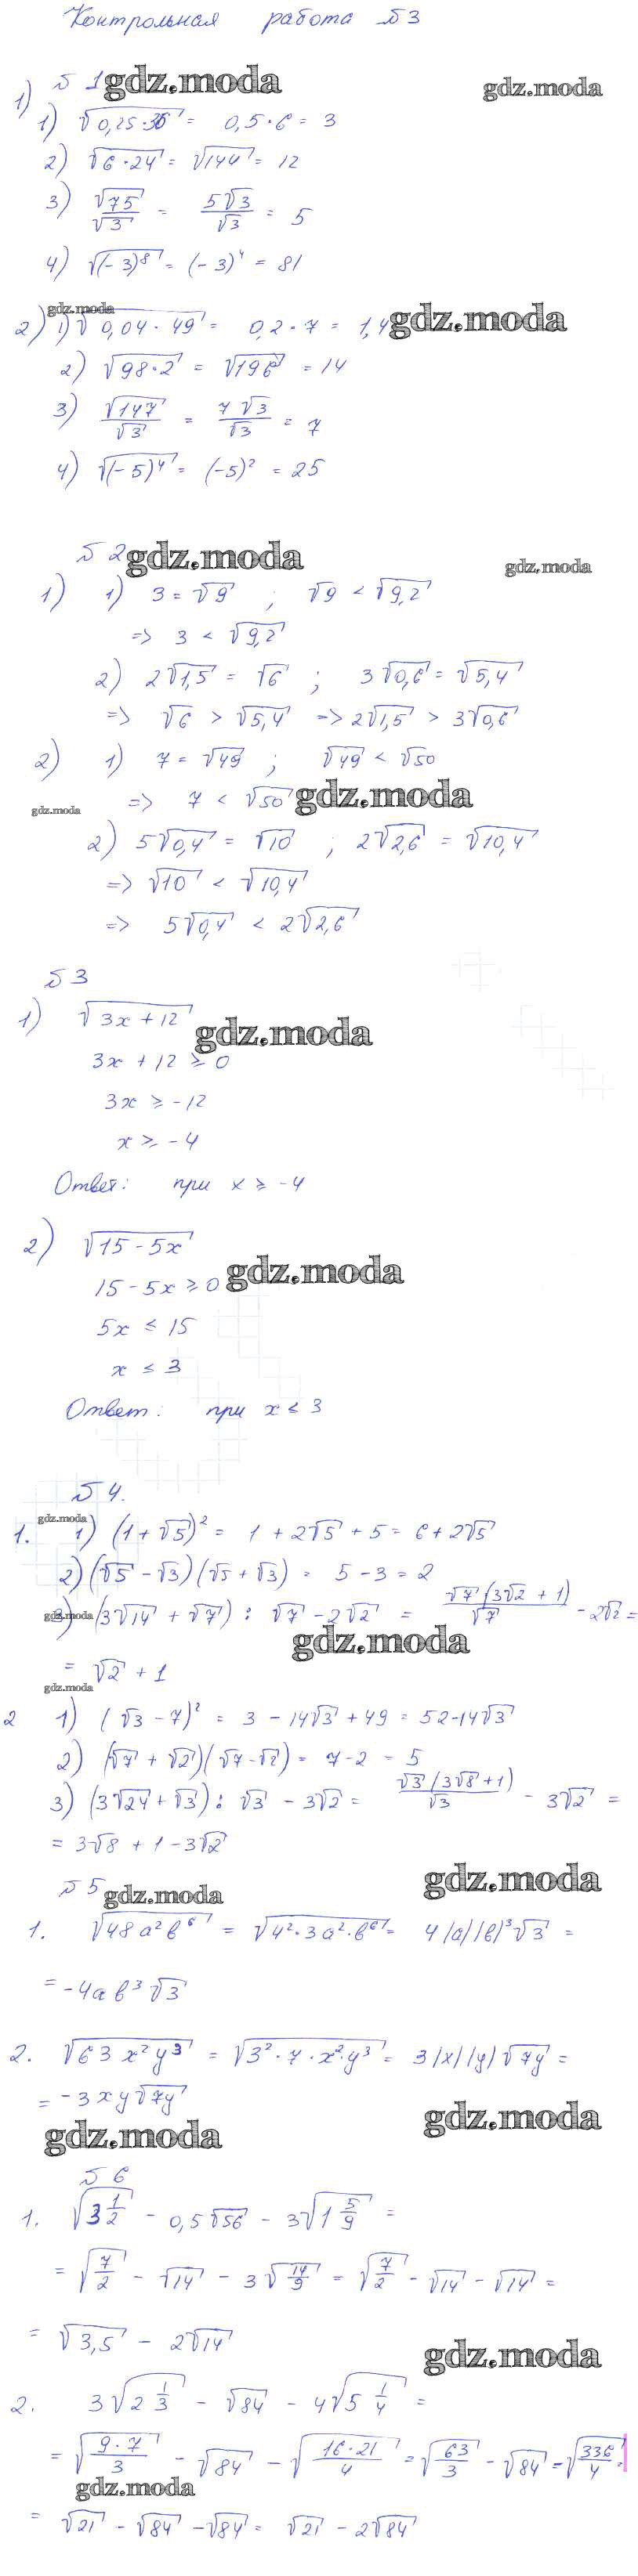 Контрольная работа №3
№ 1 gdz.moda gdz.moda
1) 1) √(0,25·36) = 0,5·6 = 3
2) √(6·24) = √144 = 12
3) √75/√3 = 5√3/√3 = 5
4) √((-3)^8) = (-3)^4 = 81
gdz.moda
2) 1) √(0,04·49) = 0,2·7 = 1,4 gdz.moda
2) √(98·2) = √196 = 14
3) √147/√3 = 7√3/√3 = 7
4) √((-5)^4) = (-5)^2 = 25
№ 2 gdz.moda gdz.moda
1) 1) 3 = √9 ; √9 < √9,2
=> 3 < √9,2
2) 2√1,5 = √6 ; 3√0,6 = √5,4
=> √6 > √5,4 => 2√1,5 > 3√0,6
2) 1) 7 = √49 ; √49 < √50
gdz.moda => 7 < √50 gdz.moda
2) 5√0,4 = √10 ; 2√2,6 = √10,4
=> √10 < √10,4
=> 5√0,4 < 2√2,6
№ 3
1) √(3x + 12) gdz.moda
3x + 12 ≥ 0
3x ≥ -12
x ≥ -4
Ответ: при x ≥ -4
2) √(15 - 5x)
15 - 5x ≥ 0 gdz.moda
5x ≤ 15
x ≤ 3
Ответ: при x ≤ 3
№ 4.
gdz.moda
1. 1) (1 + √5)^2 = 1 + 2√5 + 5 = 6 + 2√5
2) (√5 - √3)(√5 + √3) = 5 - 3 = 2
gdz.moda
3) (3√14 + √7) : √7 - 2√2 = √7(3√2 + 1)/√7 - 2√2 =
gdz.moda
= √2 + 1
gdz.moda
2 1) (√3 - 7)^2 = 3 - 14√3 + 49 = 52 - 14√3
2) (√7 + √2)(√7 - √2) = 7 - 2 = 5
3) (3√24 + √3) : √3 - 3√2 = √3(3√8 + 1)/√3 - 3√2 =
= 3√8 + 1 - 3√2
№ 5 gdz.moda gdz.moda
1. √(48a^2b^6) = √(4^2·3a^2·b^6) = 4|a||b|^3√3 =
= -4ab^3√3
2. √(63x^2y^3) = √(3^2·7·x^2·y^3) = 3|x||y|√(7y) =
= -3xy√(7y)
gdz.moda gdz.moda
№ 6
1. √(3 1/2) - 0,5√56 - 3√(1 5/9) =
= √(7/2) - √14 - 3√(14/9) = √(7/2) - √14 - √14 =
= √3,5 - 2√14
gdz.moda
2. 3√(2 1/3) - √84 - 4√(5 1/4) =
= √(9·7/3) - √84 - √(16·21/4) = √(63/3) - √84 = √(336/4) =
gdz.moda
= √21 - √84 - √84 = √21 - 2√84